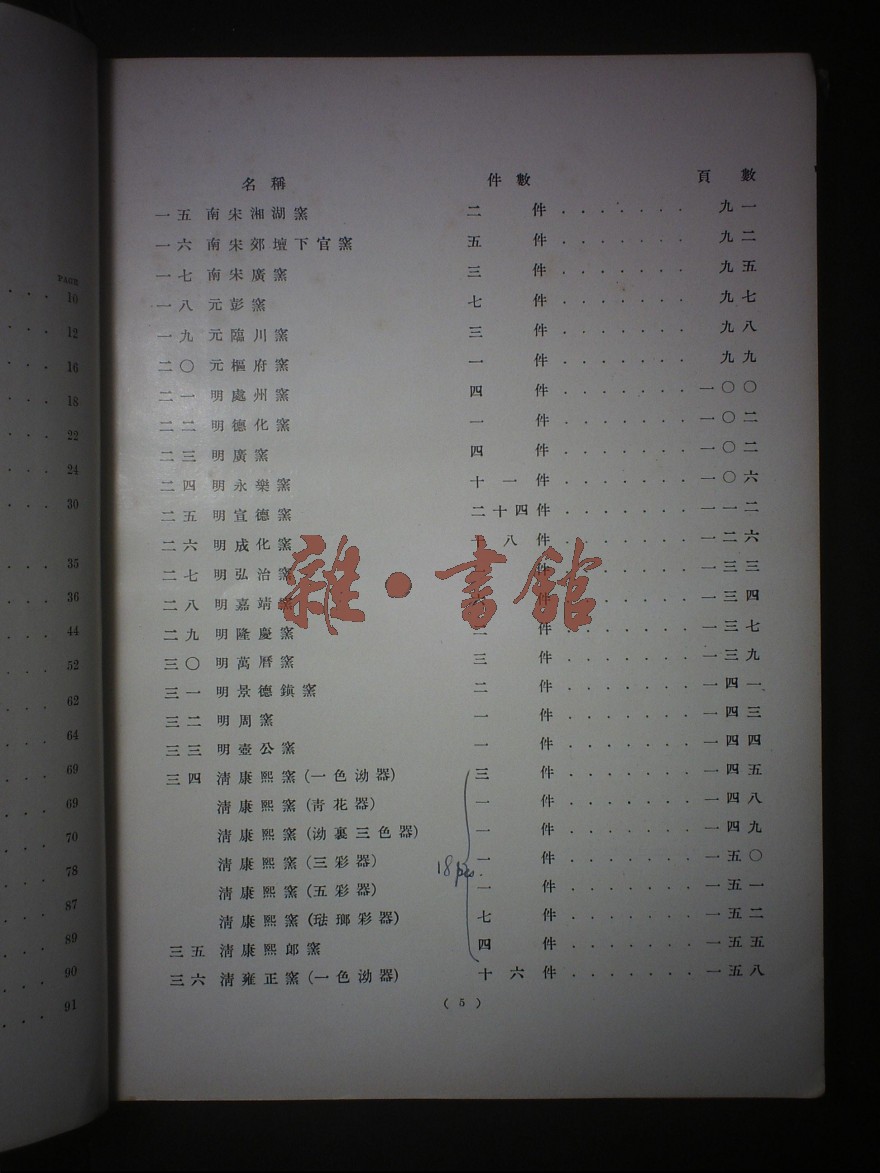 PAGE
10
12
16
18
22
24
30
35
36
44
52
62
64
69
69
70
78
87
89
90
91
名稱 件數 頁數
一五 南宋湘湖窯 二件 . . . . . . . 九一
一六 南宋郊壇下官窯 五件 . . . . . . . 九二
一七 南宋廣窯 三件 . . . . . . . 九五
一八 元彭窯 七件 . . . . . . . 九七
一九 元臨川窯 三件 . . . . . . . 九八
二〇 元樞府窯 一件 . . . . . . . 九九
二一 明處州窯 四件 . . . . . . . 一〇〇
二二 明德化窯 一件 . . . . . . . 一〇二
二三 明廣窯 四件 . . . . . . . 一〇二
二四 明永樂窯 十一件 . . . . . . . 一〇六
二五 明宣德窯 二十四件 . . . . . . . 一一二
二六 明成化窯 十八件 . . . . . . . 一二六
二七 明弘治窯 件 . . . . . . . 一三三
二八 明嘉靖窯 件 . . . . . . . 一三四
二九 明隆慶窯 二件 . . . . . . . 一三七
三〇 明萬曆窯 三件 . . . . . . . 一三九
三一 明景德鎮窯 二件 . . . . . . . 一四一
三二 明周窯 一件 . . . . . . . 一四三
三三 明壺公窯 一件 . . . . . . . 一四四
三四 清康熙窯(一色泑器) 三件 . . . . . . . 一四五
清康熙窯(青花器) 一件 . . . . . . . 一四八
清康熙窯(泑裏三色器) 一件 . . . . . . . 一四九
清康熙窯(三彩器) 一件 . . . . . . . 一五〇
18 pcs.
清康熙窯(五彩器) 一件 . . . . . . . 一五一
清康熙窯(琺瑯彩器) 七件 . . . . . . . 一五二
三五 清康熙郎窯 四件 . . . . . . . 一五五
三六 清雍正窯(一色泑器) 十六件 . . . . . . . 一五八
( 5 )
雜·書館